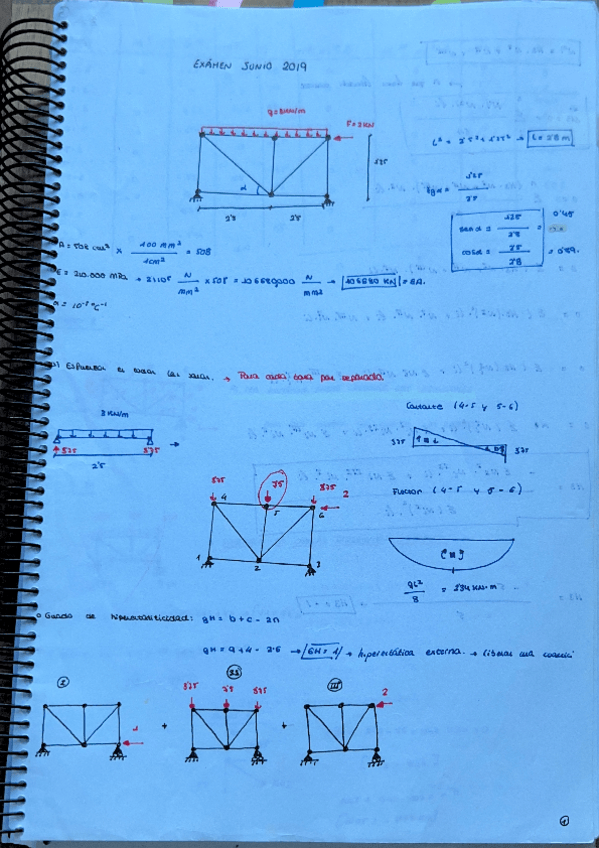 EXÁMEN JUNIO 2019
q=3KN/m
F=2KN
1'25
α
2'5 2'5
L² = 2'5² + 1'25² → L=2'8m
tgα = 1'25 / 2'5
senα = 1'25 / 2'8 = 0'45
cosα = 2'5 / 2'8 = 0'89.
A = 5'08 cm² × 100 mm² / 1cm² = 508
E = 210.000 MPa → 2'1·10⁵ N/mm² × 508 = 106680000 N/mm² → 106680 KN = EA.
α = 10⁻⁵ ºC⁻¹
→ Para cada barra por separado.
3KN/m
3'75 3'75
2'5
→
Cortante (4-5 y 5-6)
3'75
3'75
3'75 7'5 3'75 2
4 5 6
1 2 3
Flexión (4-5 y 5-6)
qL²/8 = 2'34 KN·m
Grado de hiperestaticidad: GH = b+c-2n
GH = 9+4-2·6 → GH=1 → hiperestática externa. → liberar una
I II III
3'75 7'5 3'75 2
1
+ +
1